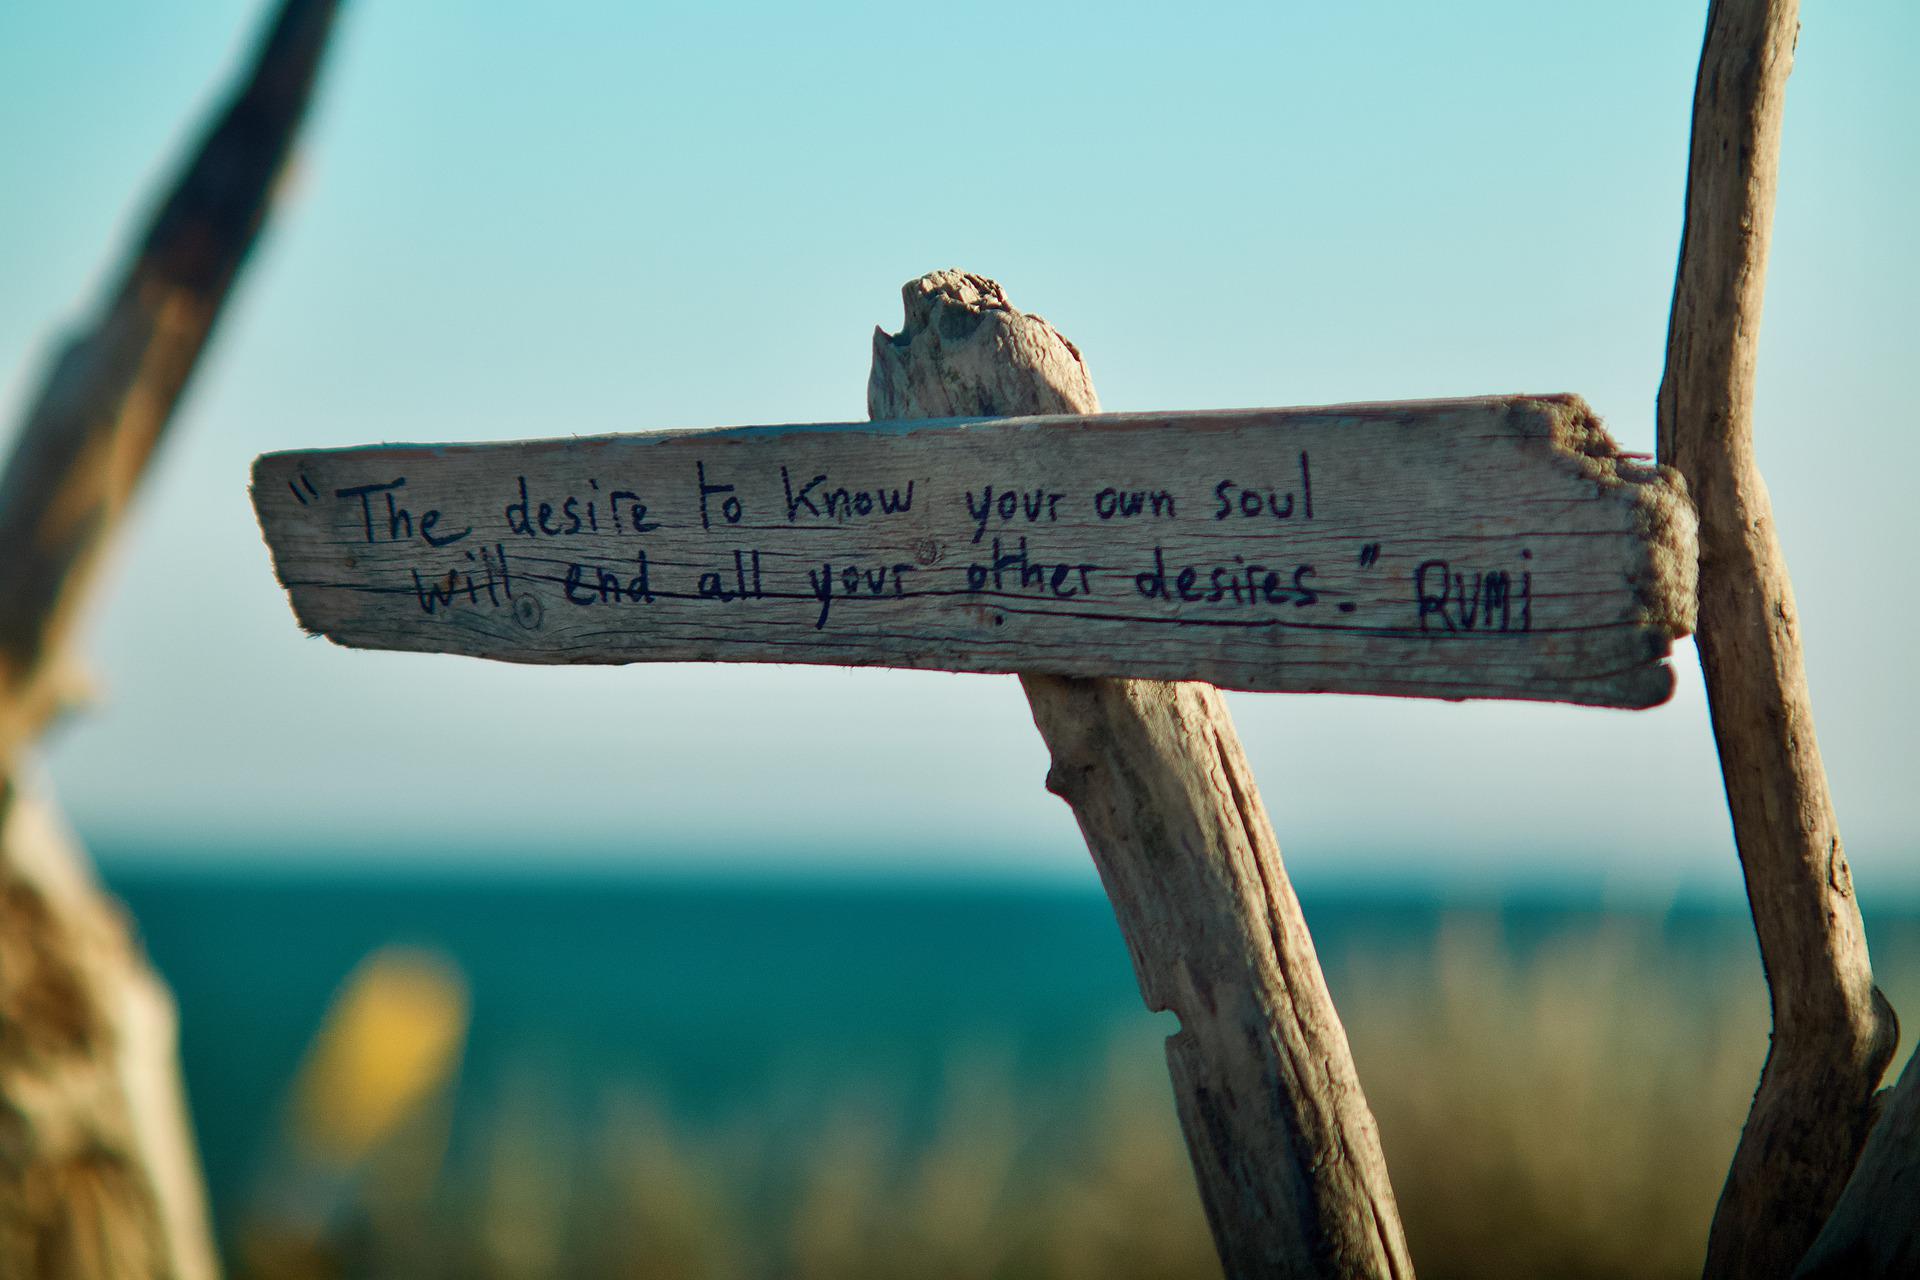 "The desire to know your own soul
will end all your other desires." RUMi